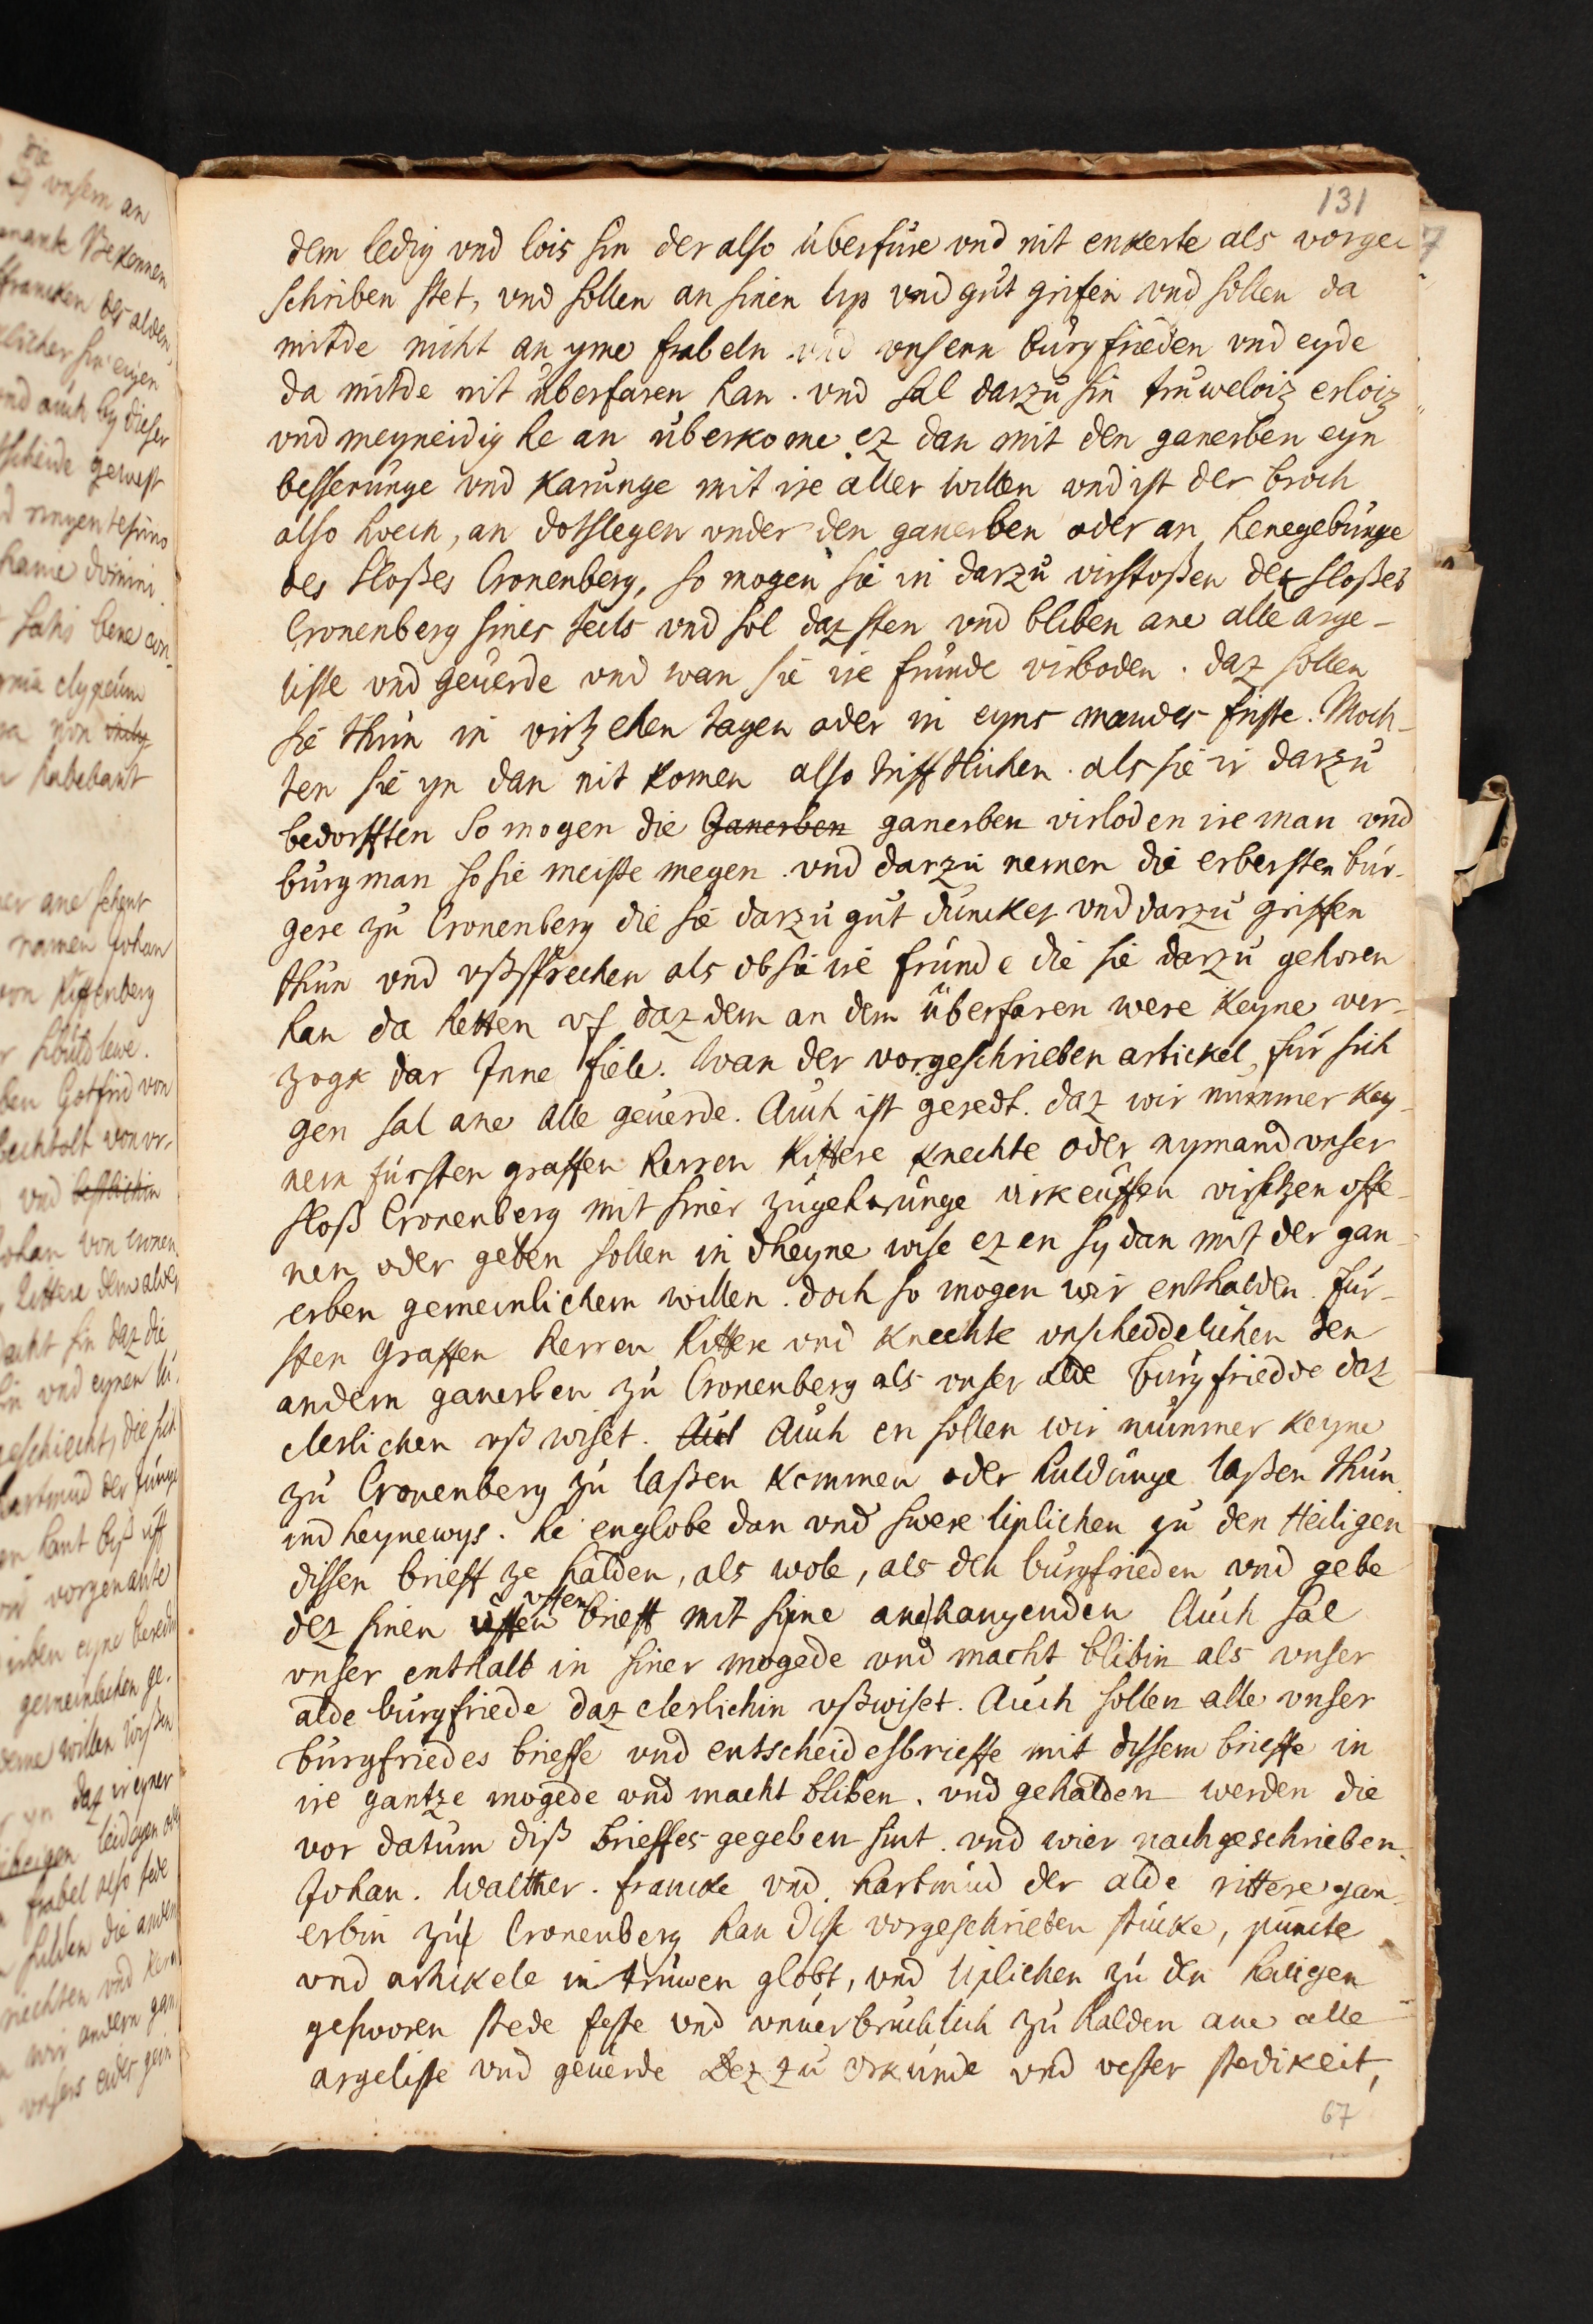 131
dem ledig vnd lois sin der also überfüre vnd nit enkerte als vorge-
schriben stet, vnd sollen an sinen lip vnd gut grifen vnd sollen da
mitde nicht an yme frabeln vnd vnsern burgfrieden vnd eyde
da mitde nit überfaren han. vnd sal darzu sin truweloiz erloiz
vnd meyneidig he an überkome ez dan mit den ganerben eyn
besserunge vnd karunge mit ire aller willen vnd ist der broch
also hoech, an dotslegen vnder den ganerben oder an henegebunge
des sloßes Cronenberg, so mogen sie in darzu virstoßen dez sloßes
Cronenberg sines teils vnd sol daz sten vnd bliben ane alle arge-
liste vnd geuerde vnd wan sie ire frunde virboden. daz sollen
sie thun in virzehen tagen oder in eyns mandes friste. Moch-
ten sie yn dan nit komen also trifftlichen. als sie ir darzu
bedorfften So mogen die Ganerben ganerben virloden ire man vnd
burgman so sie meiste megen. vnd darzu nemen die erbersten bur-
gere zu Cronenberg die sie darzu gut duncket vnd darzu griffen
thun vnd vßsprechen als ob sie ire frunde die sie darzu gekoren
han da hetten vf daz dem an dem überfaren were keyne ver-
zogk dar Inne fiele. Wan der vorgeschrieben artickel für sich
gen sal ane alle geuerde. Auch ist geredt. daz wir nummer key-
nem fürsten graffen herren Rittere knechte oder nymand vnser
sloß Cronenberg mit siner zugehorunge virkeuffen virsetzen offe-
nen oder geben sollen in dheyne wise ez en sy dan mit der gan-
erben gemeinlichem willen. doch so mogen wir enthalden. für-
sten Graffen Herren Rittere vnd Knechte vnscheddelichen den
andern ganerben zu Cronenberg als vnser alde burgfriedde daz
clerlichen vß wiset. Auct Auch en sollen wir nummer keyne
zu Cronenberg zu laßen kommen oder huldunge laßen thun
ind heynewys. he englobe dan vnd swere liplichen zu den Heiligen
dissen brieff ze halden, als wole, als den burgfrieden vnd gebe
vffen
dez sinen üffen brieff mit sime anehangenden Auch sal
vnser enthalt in siner mogede vnd macht blibin als vnser
alde burgfriede daz clerlichin vßwiset. Auch sollen alle vnser
burgfriedes brieffe vnd entscheidesbrieffe mit dissem brieffe in
ire gantze mogede vnd macht bliben. vnd gehalden werden die
vor datum diß brieffes gegeben sint. vnd wier nachgeschrieben.
Johan. Walther. francke vnd hartmud der alde rittere gan-
erbin zu Cronenberg han dise vorgeschrieben stücke, puncte
vnd artikele in truwen globt, vnd liplichen zu den heiligen
gesworen stede feste vnd vnuerbruchlich zu halden ane alle
argeliste vnd geuerde Dez zu Orkunde vnd vester stedikeit,
67